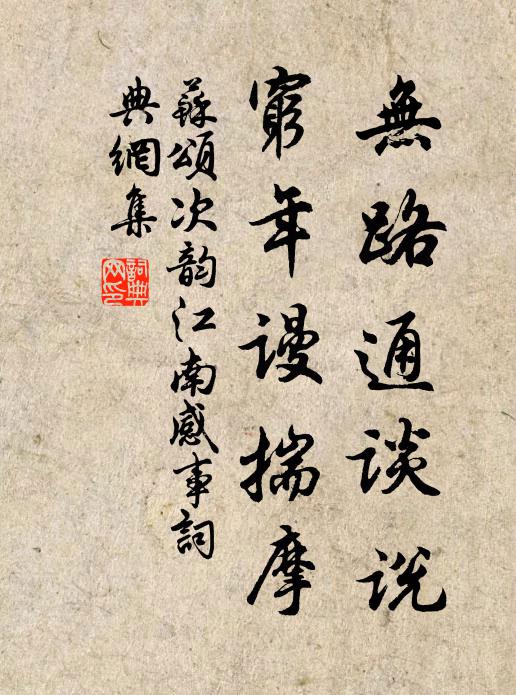 無路通談説
窮年謾揣摩
蘇頌次韵江南感事詞
典網集
詞典
网印